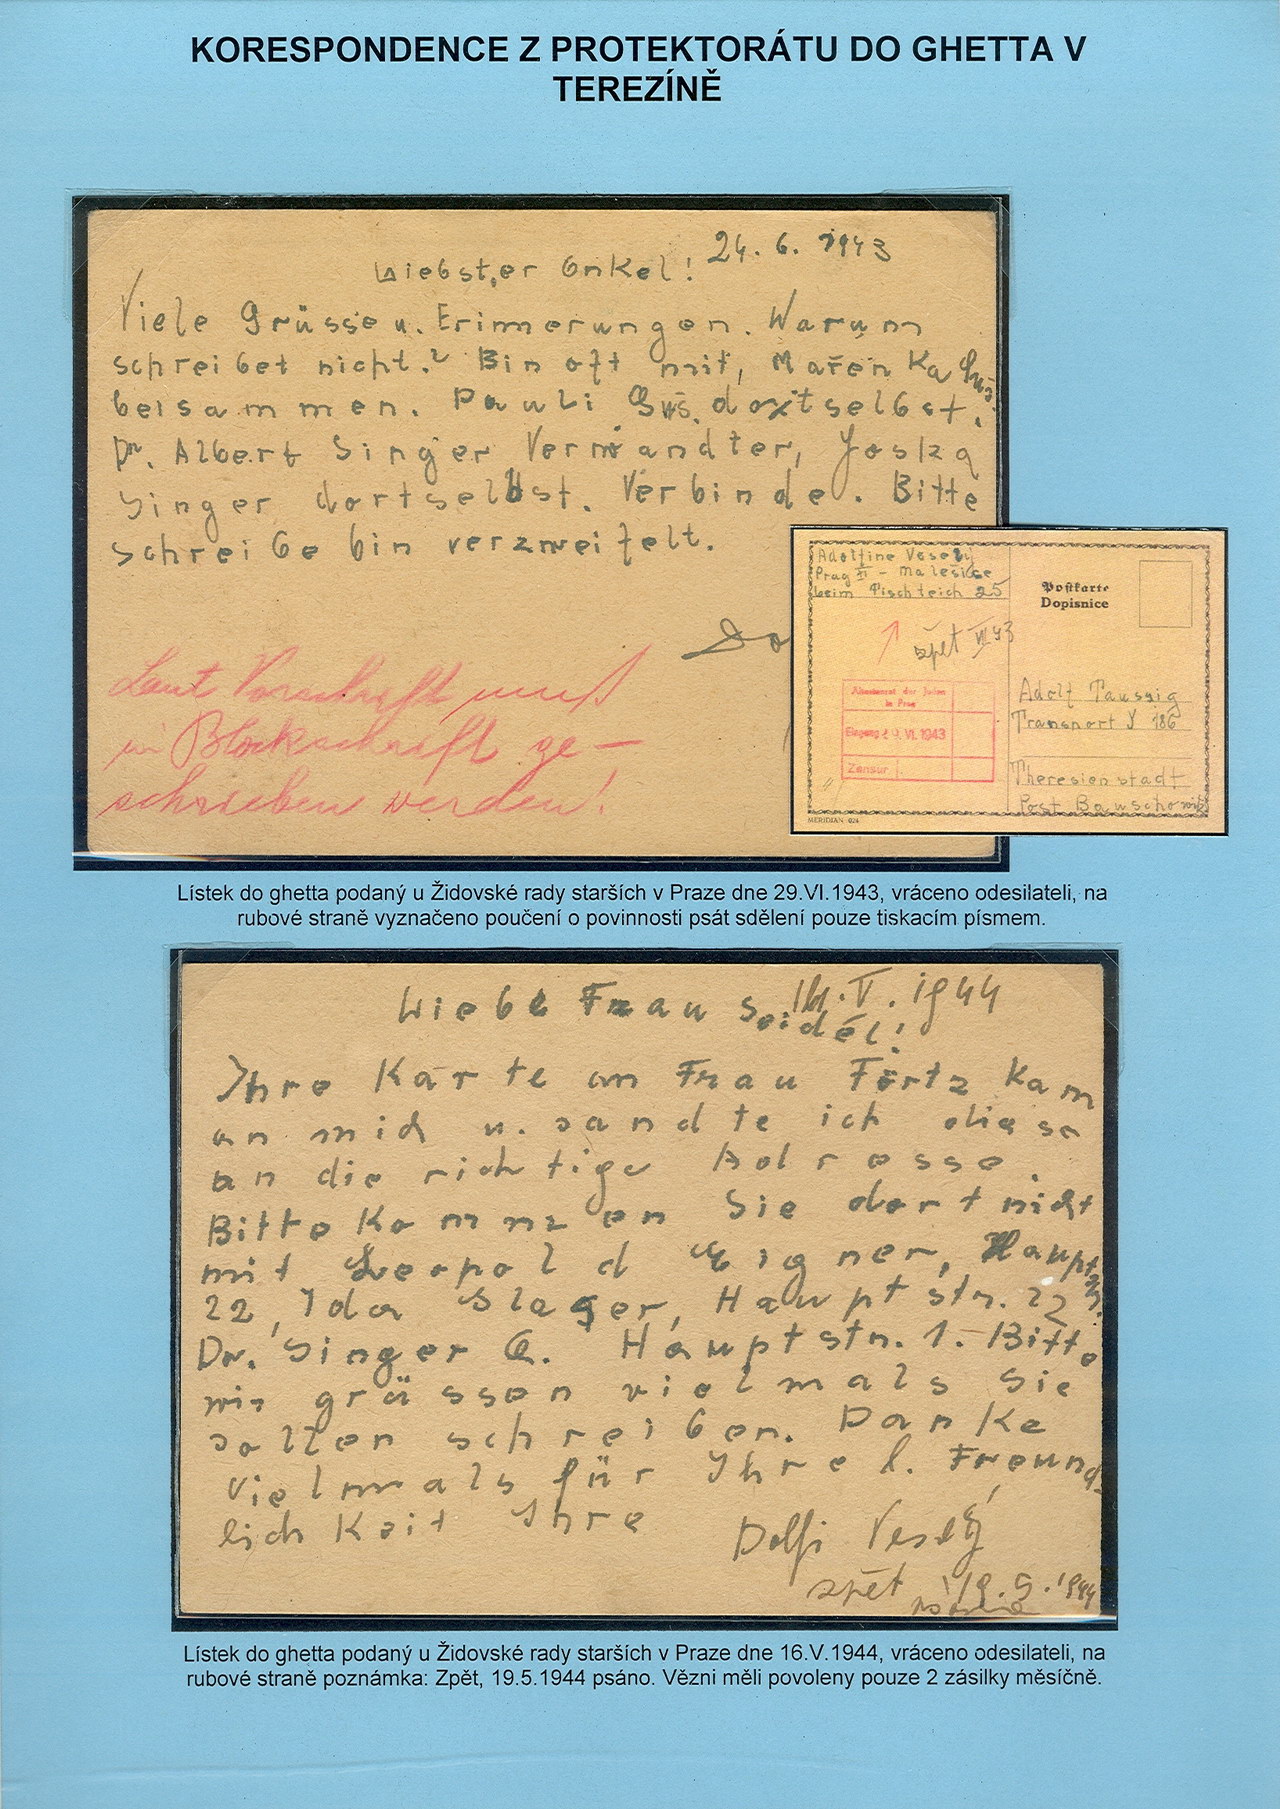 KORESPONDENCE Z PROTEKTORÁTU DO GHETTA V
TEREZÍNĚ
24. 6. 1943
Liebster Onkel!
Viele Grüsse u. Erinnerungen. Warum
schreibet nicht? Bin oft mit, Mařenka
beisammen. Pauli Sus. dortselbst.
Dr. Albert Singer Verwandter, Joska
Singer dortselbst. Verbinde. Bitte
schreibe bin verzweifelt.
Do
Laut Vorschrift muß
in Blockschrift ge-
schrieben werden!
Adolfine Veselý
Prag XI - Malešice
beim Fischteich 25
Postkarte
Dopisnice
zpět VI 43
Ältestenrat der Juden
in Prag
Eingang 29. VI. 1943
Zensur
Adolf Taussig
Transport Y 186
Theresienstadt
Post Bauschowitz
MERIDIAN 024
Lístek do ghetta podaný u Židovské rady starších v Praze dne 29.VI.1943, vráceno odesilateli, na
rubové straně vyznačeno poučení o povinnosti psát sdělení pouze tiskacím písmem.
16. V. 1944
Liebe Frau Seidel!
Ihre Karte an Frau Förtz kam
an mich u. sandte ich diese
an die richtige Adresse.
Bitte Kommen Sie dort nicht
mit Leopold Eigner, Hauptstr.
22, Ida Slager, Hauptstr. 22
Dr. Singer Q. Hauptstr. 1. Bitte
wir grüssen vielmals Sie
sollen schreiben. Danke
vielmals für Ihre l. Freund-
lichkeit Ihre
Dolfi Veselý
zpět 19.5.1944
psáno
Lístek do ghetta podaný u Židovské rady starších v Praze dne 16.V.1944, vráceno odesilateli, na
rubové straně poznámka: Zpět, 19.5.1944 psáno. Vězni měli povoleny pouze 2 zásilky měsíčně.